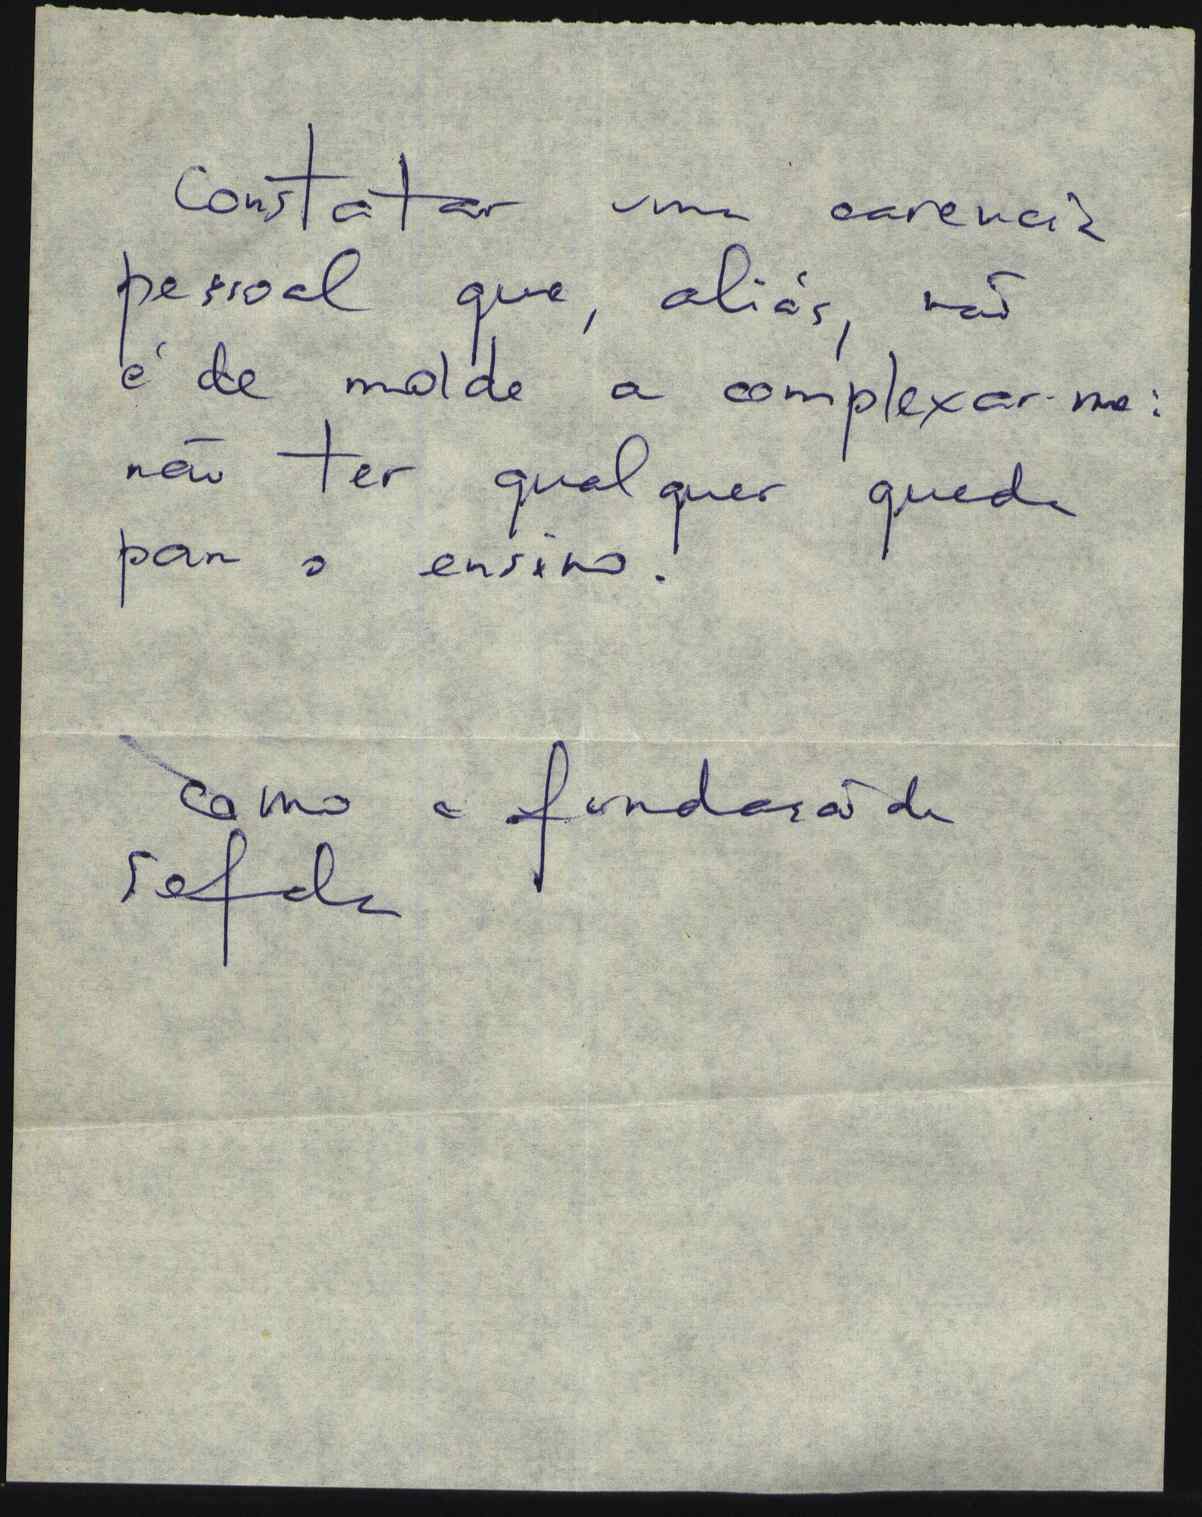 Constatar uma carencia
pessoal que, aliás, não
é de molde a complexar-me:
não ter qualquer queda
para o ensino.
como a fundação da